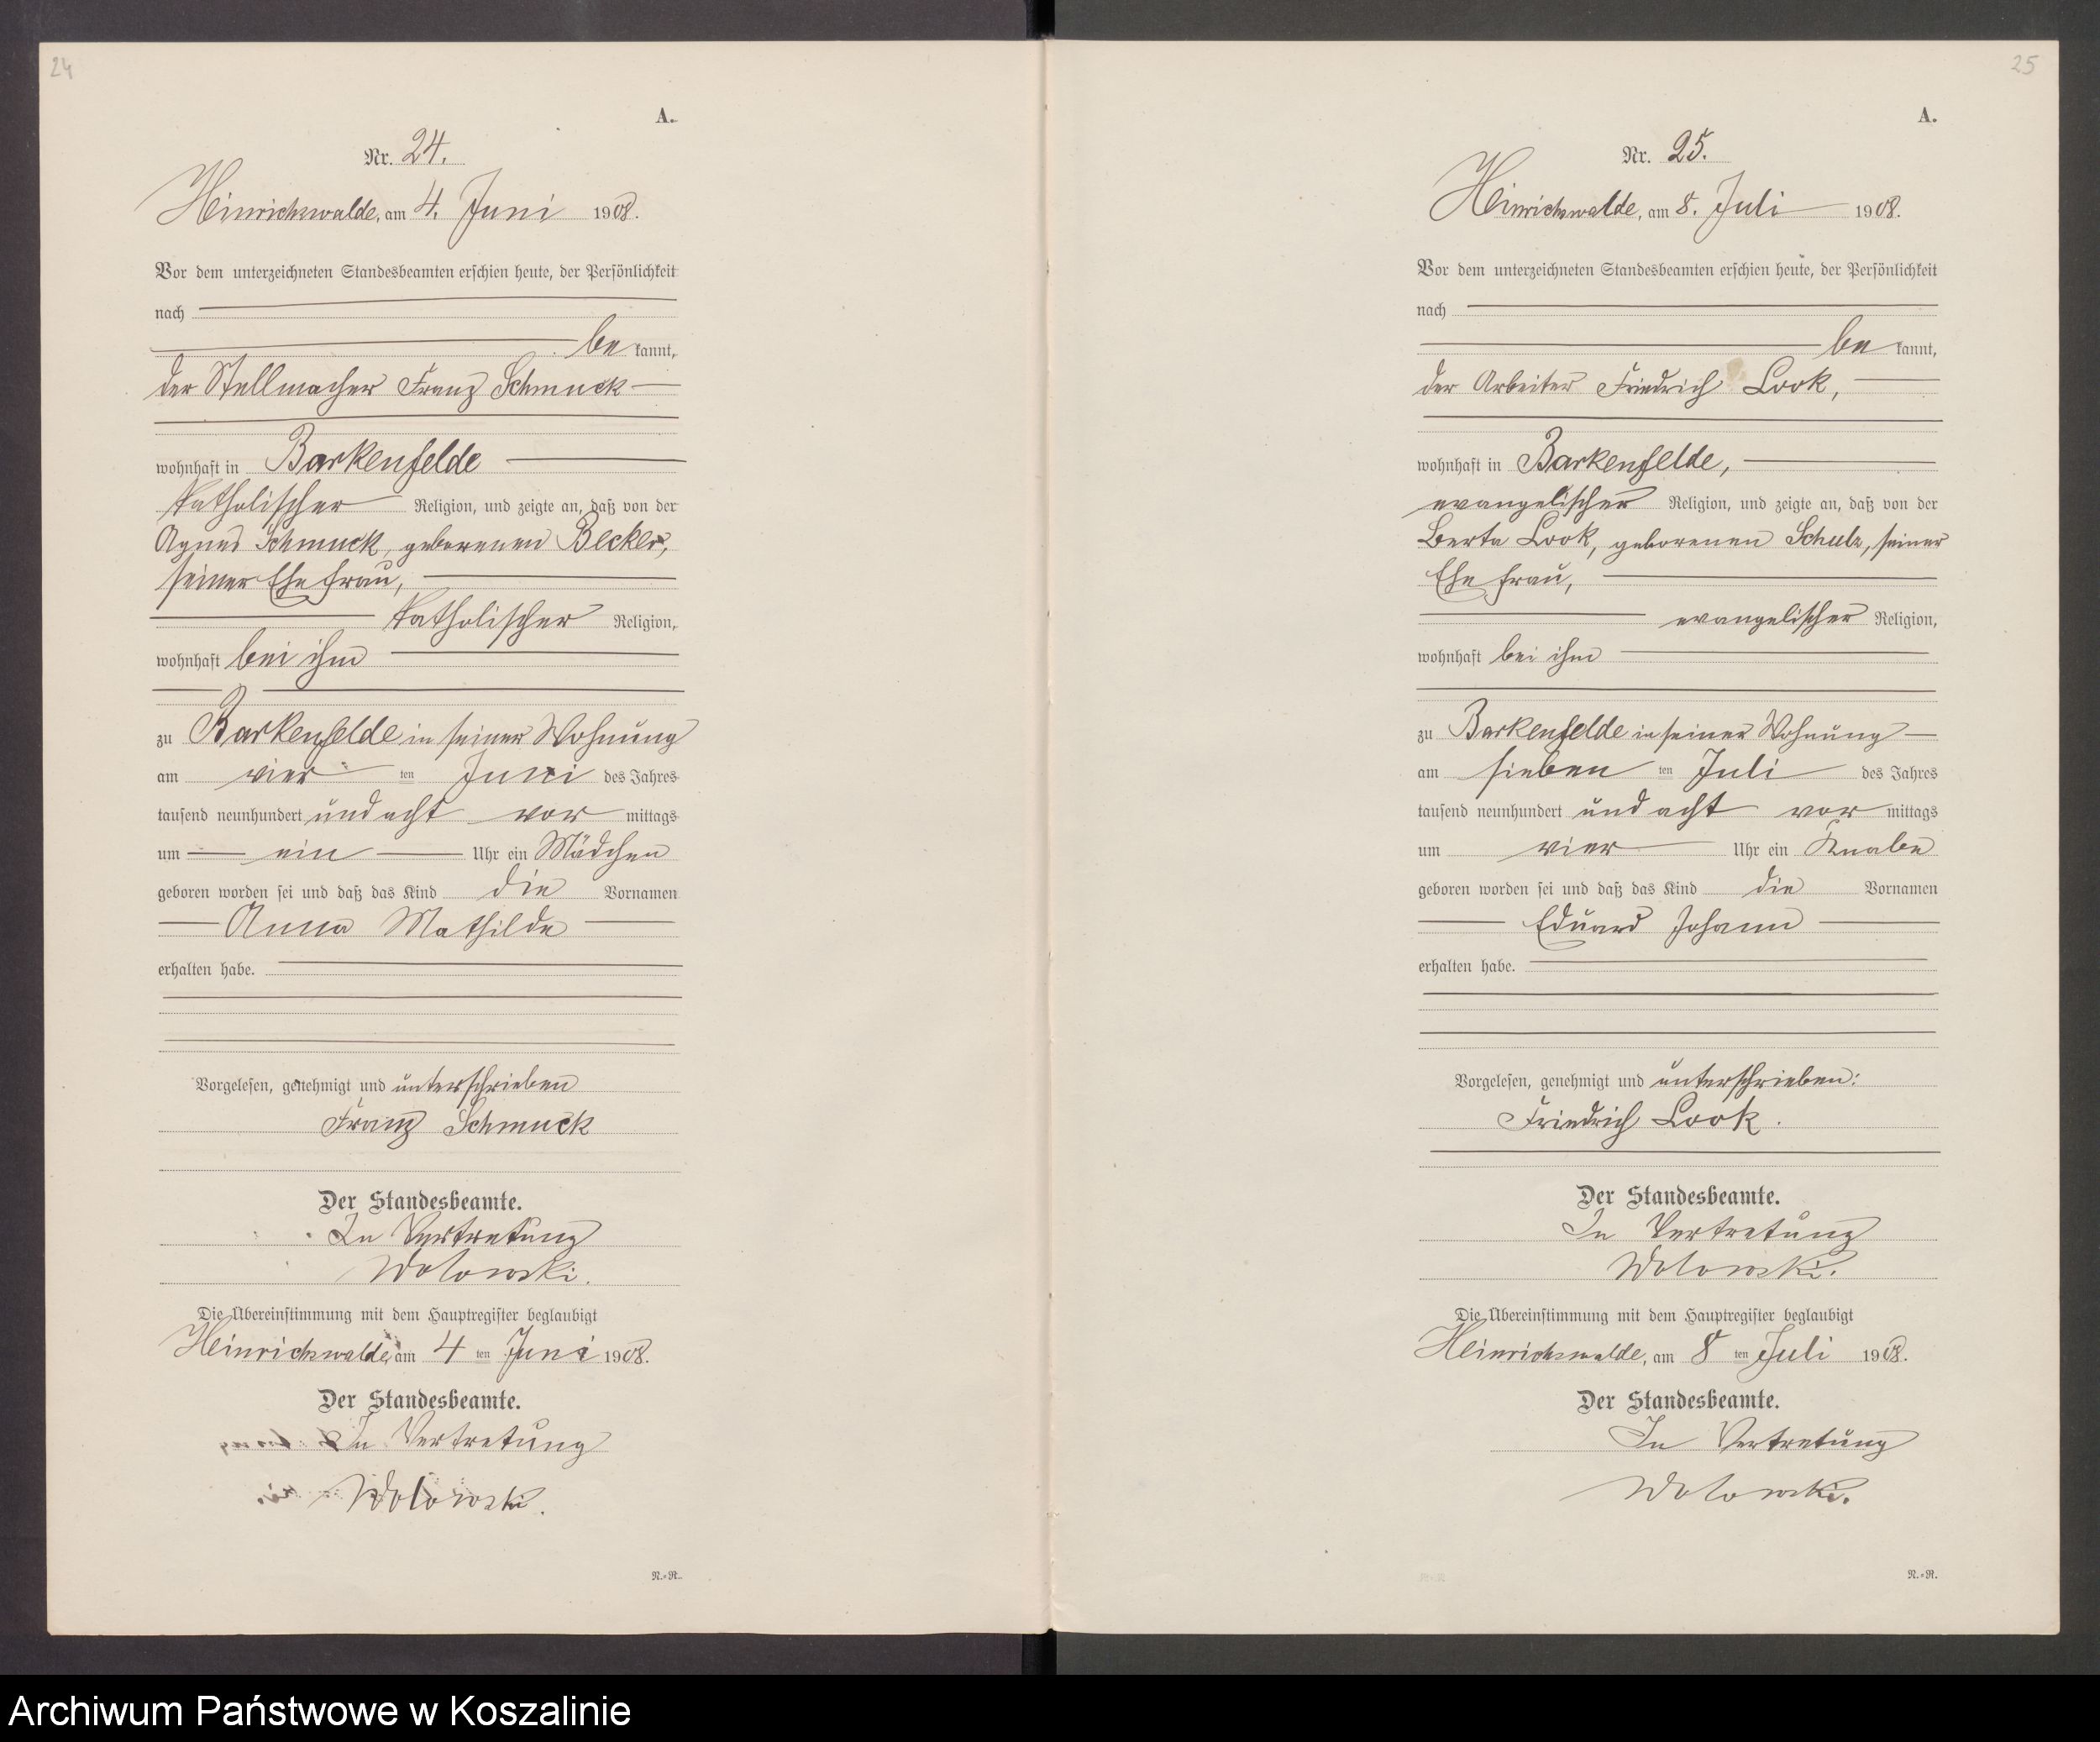 24
A.
Nr. 24.
Heinrichswalde, am 4. Juni 1908.
Vor dem unterzeichneten Standesbeamten erschien heute, der Persönlichkeit
nach
be kannt,
der Stellmacher Franz Schmuck
wohnhaft in Barkenfelde
katholischer Religion, und zeigte an, daß von der
Agnes Schmuck, geborenen Becker,
seiner Ehefrau,
katholischer Religion,
wohnhaft bei ihm
zu Barkenfelde in seiner Wohnung
am vier ten Juni des Jahres
tausend neunhundert und acht vor mittags
um ein Uhr ein Mädchen
geboren worden sei und daß das Kind die Vornamen
Anna Mathilde
erhalten habe.
Vorgelesen, genehmigt und unterschrieben
Franz Schmuck
Der Standesbeamte.
In Vertretung
Wolowski.
Die Übereinstimmung mit dem Hauptregister beglaubigt
Heinrichswalde, am 4 ten Juni 1908.
Der Standesbeamte.
In Vertretung
Wolowski.
N.=R.
25
A.
Nr. 25.
Heinrichswalde, am 8. Juli 1908.
Vor dem unterzeichneten Standesbeamten erschien heute, der Persönlichkeit
nach
be kannt,
der Arbeiter Friedrich Look,
wohnhaft in Barkenfelde,
evangelischer Religion, und zeigte an, daß von der
Berta Look, geborenen Schulz, seiner
Ehefrau,
evangelischer Religion,
wohnhaft bei ihm
zu Barkenfelde in seiner Wohnung
am sieben ten Juli des Jahres
tausend neunhundert und acht vor mittags
um vier Uhr ein Knabe
geboren worden sei und daß das Kind die Vornamen
Eduard Johann
erhalten habe.
Vorgelesen, genehmigt und unterschrieben:
Friedrich Look.
Der Standesbeamte.
In Vertretung
Wolowski.
Die Übereinstimmung mit dem Hauptregister beglaubigt
Heinrichswalde, am 8 ten Juli 1908.
Der Standesbeamte.
In Vertretung
Wolowski.
N.=R.
Archiwum Państwowe w Koszalinie